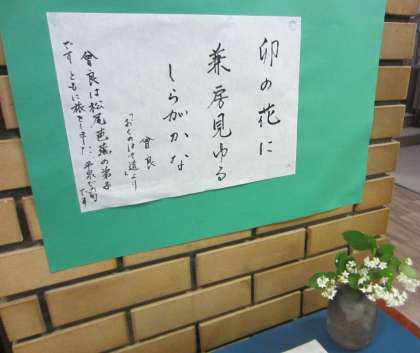 卯の花に
兼房見ゆる
しらがかな
曾良
「おくのほそ道」より
曾良は松尾芭蕉の弟子
です ともに旅をしました 平泉の句
です